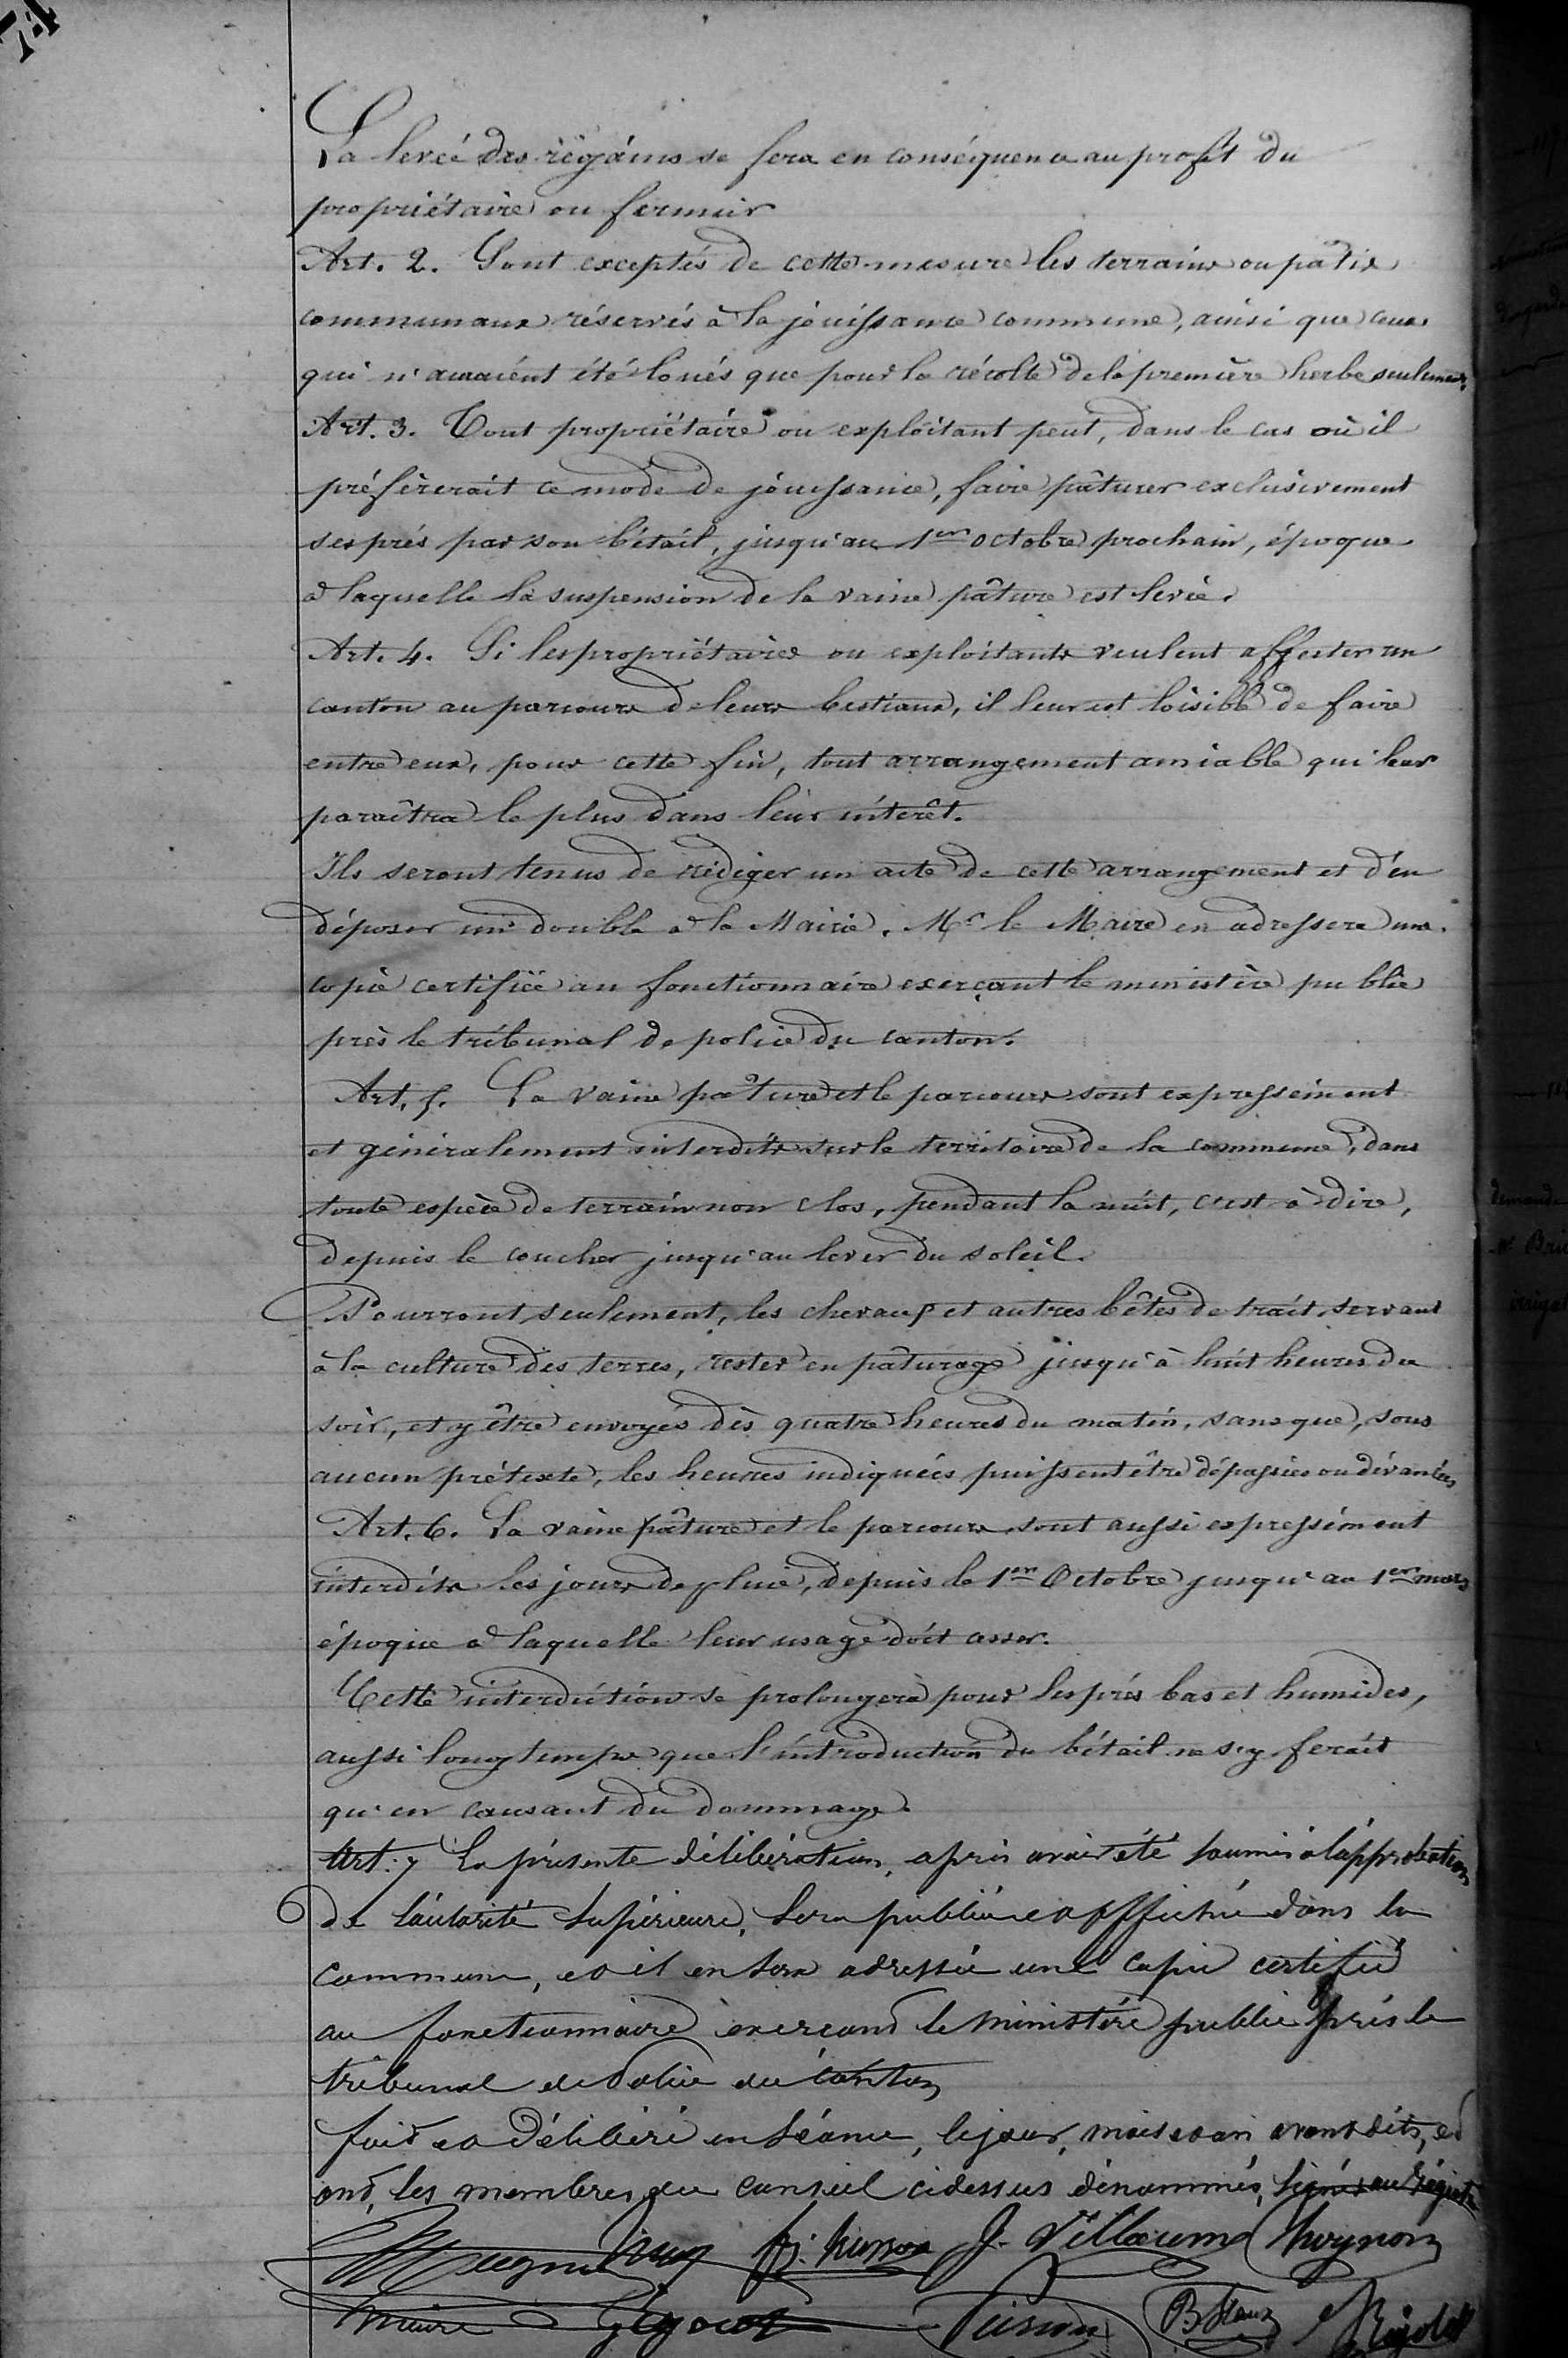 74
La levée des regains se fera en conséquence au profit du
propriétaire ou fermier
Art. 2. Sont exceptés de cette mesure les terrains ou pâtis
communaux réservés à la jouissance commune, ainsi que ceux
qui n'auraient été loués que pour la récolte de la première herbe seulement.
Art. 3. Tout propriétaire ou exploitant peut, dans le cas où il
préfèrerait ce mode de jouissance, faire pâturer exclusivement
ses prés par son bétail, jusqu'au 1er octobre prochain, époque
à laquelle la suspension de la vaine pâture est levée.
Art. 4. Si les propriétaires ou exploitants veulent affecter un
canton au parcours de leurs bestiaux, il leur est loisible de faire
entre eux, pour cette fin, tout arrangement amiable qui leur
paraîtra le plus dans leur intérêt.
Ils seront tenus de rédiger un acte de cette arrangement et d'en
déposer un double à la Mairie. Mr le Maire en adressera une
copie certifiée au fonctionnaire exerçant le ministère public
près le tribunal de police du canton.
Art. 5. La vaine pâture et le parcours sont expressément
et généralement interdits sur le territoire de la commune, dans
toute espèce de terrain non clos, pendant la nuit, c'est à dire,
depuis le coucher jusqu'au lever du soleil.
Pourront seulement, les chevaux et autres bêtes de trait, servant
à la culture des terres, rester en pâturage jusqu'à huit heures du
soir, et y être envoyés dès quatre heures du matin, sans que, sous
aucun prétexte, les heures indiquées puissent être dépassées ou dévancées
Art. 6. La vaine pâture et le parcours sont aussi expressément
interdits les jours de pluie, depuis le 1er Octobre jusqu'au 1er mars
époque à laquelle leur usage doit cesser.
Cette interdiction se prolongera pour les prés bas et humides,
aussi longtemps que l'introduction du bétail ne s'y ferait
qu'en causant du dommage.
Art. 7 La présente délibération, après avoir été soumis à l'approbation
de l'autorité supérieure, sera publiée et affichée dans la
commune, et il en sera adressée une copie certifié
au fonctionnaire exerçant le ministère public près le
tribunal de Police du canton
fait et délibéré en séance, le jour, mois et an avant dits, et
ont, les membres du conseil ci dessus dénommés, signés au régistre
J. Villaume Thugnon
maire Gegout Poirson Rigolot